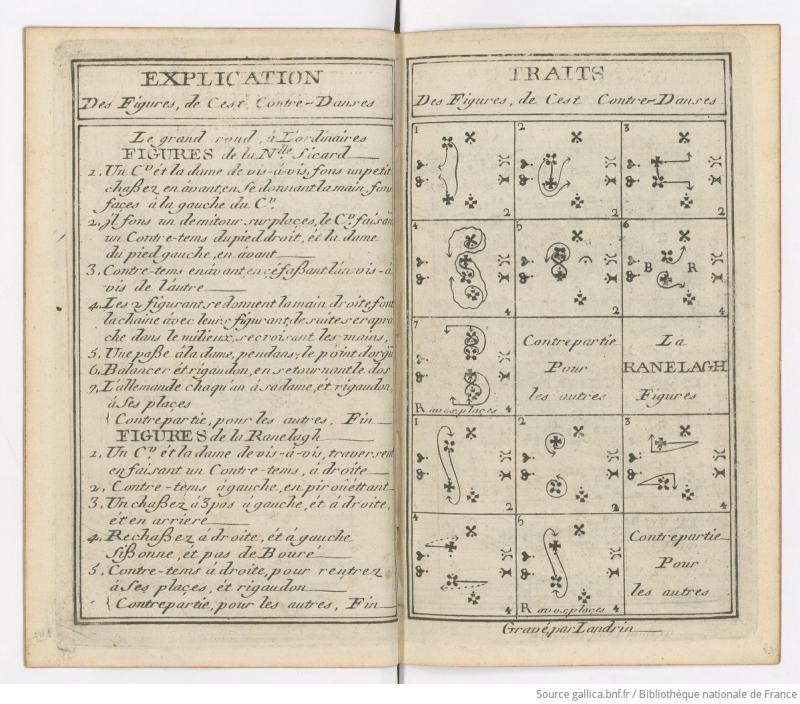 EXPLICATION
Des Figures, de Cest. Contre-Danses
Le grand rond, à L'ordinaires
FIGURES de la N.lle Sicard
1. Un C.er ét la dame de vis-à-vis, fons un petit
chaßez en avant, en Se donnant la main, fons
façes à la gauche du C.er
2. jl fons un demi tour sur plaçes, le C.er faisan
un Contre-tems du pied droit, ét la dame
du pied gauche, en avant
3. Contre-tems en avant en çé faßant l'un vis-à
vis de l'autre
4. Les 2 figurant, se donnent la main droite, font
la chaine avec leurs figurant, de suite se rapro
che dans le milieux, se croisant les mains,
5. Une paße à la dame, pendans, le point d'orgu
6. Balancer ét rigaudon, en se tournant le dos
7. L'allemande chaqu'un à sa dame, ét rigaudon,
à Ses plaçes
Contrepartie, pour les autres, Fin
FIGURES de la Ranelagh
1. Un C.er ét la dame de vis-à-vis, traversent
en faisant un Contre-tems, à droite
2. Contre-tems à gauche, en piroüettant
3. Un chaßez à 3 pas à gauche, ét à droite,
ét en arriere
4. Rechaßez à droite, ét à gauche
Sißonne, ét pas de Bouré
5. Contre-tems à droite, pour rentrez
à Ses plaçes, ét rigaudon
Contrepartie, pour les autres, Fin
TRAITS
Des Figures, de Cest Contre-Danses
1
2
2
2
3
2
4
4
5
2
6
B R
4
7
R a vos plaçes 4
Contrepartie
Pour
les autres
La
RANELAGH
Figures
1
2
2
2
3
4
4
4
5
R a vos plaçes 4
Contrepartie
Pour
les autres
Gravé, par Landrin
Source gallica.bnf.fr / Bibliothèque nationale de France